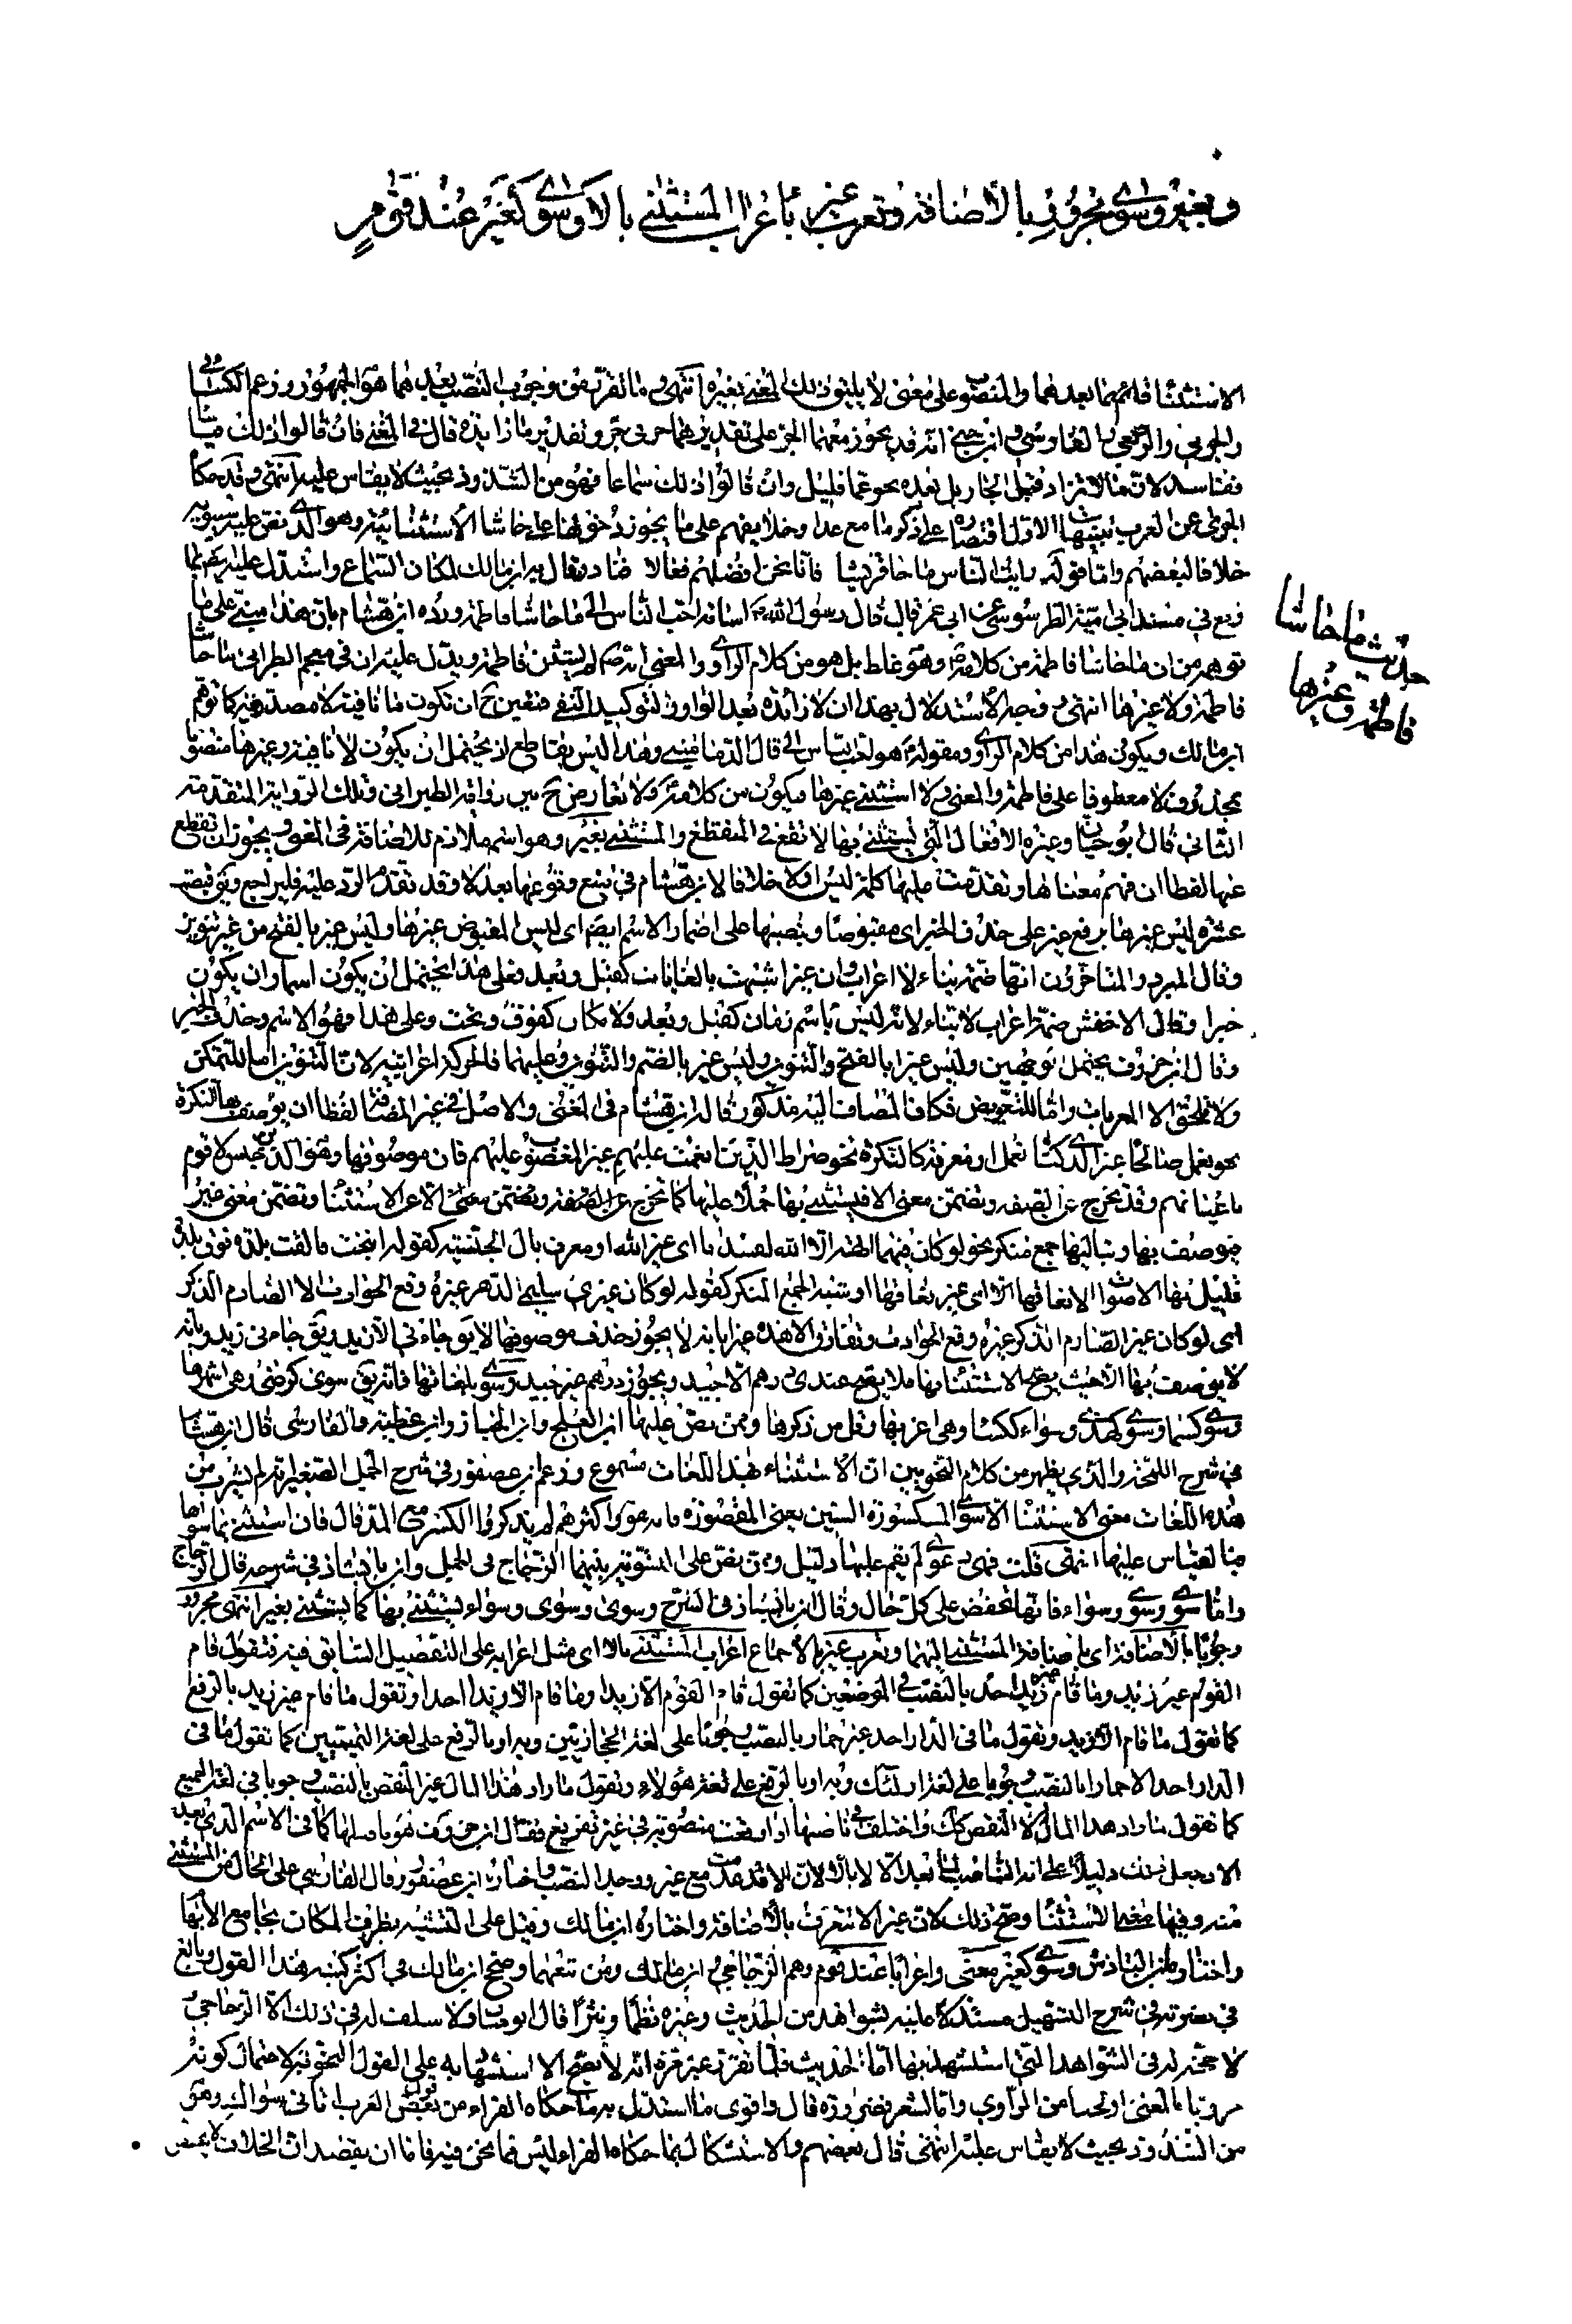 وبغير وسوى مجرور بالاضافة وتعرب غير باعراب المستثنى بالا وسوى كغير عند قوم
الاستثنا قائم بما بعدهما والمنصوب على معنى لا يليق ذلك المعنى بغيره انتهى وما تقرر من وجوب النصب بعدهما هو الجمهور وزعم الكسائى
والجرمي والربعي والفارسي وابن جني انه قد يجوز معهما الجر على تقدير ما زائدة قال في المغني فان قالوا ذلك قياسا
ففاسد لان ما لا تزاد قبل الجار بل بعده نحو عما قليل وان قالوا ذلك سماعا فهو من الشذوذ بحيث لا يقاس عليه انتهى وقد حكاه
الجرمى عن العرب تنبيهات الاول اقتصاره على ذكر ما مع عدا وخلا يفهم على ما يجوز دخولها على حاشا الاستثنائية وهو الذي نص عليه سيبويه
خلافا لبعضهم واما قوله رايت الناس ما حاشا قريشا فانا نحن افضلهم فعالا فشاذ وقال ابن مالك لمكان السماع واستدل عليه بما
وقع في مسند ابي امية الطرسوسي عن ابن عمر قال قال رسول الله اسامة احب الناس الي ما حاشا فاطمة ورده ابن هشام بان هذا مبني على ما
توهمه من ان ما حاشا فاطمة من كلامه وهو غلط بل هو من كلام الراوي والمعنى انه لم يستثن فاطمة ويدل عليه ان في معجم الطبراني ما حاشا
فاطمة ولا غيرها انتهى ووجه الاستدلال بهذا ان لا زائدة بعد الواو لتوكيد النفي فتعين ان تكون ما نافية لا مصدرية كما توهم
ابن مالك ويكون هذا من كلام الراوي ومقوله هو احب الناس الي قال الدماميني وهذا ليس بقاطع اذ يحتمل ان يكون لا نافية وغيرها منصوبا
بمحذوف لا معطوفا على فاطمة والمعنى ولا استثنى غيرها فيكون من كلامه ولا تعارض بين رواية الطبراني وتلك الرواية المتقدمة
الثاني قال ابو حيان وغيره الافعال التي يستثنى بها لا تقع في المنقطع والمستثنى بغير وهو اسم ملازم للاضافة في المعنى ويجوز ان تقطع
عنها لفظا ان فهم معناها وتقدمت عليها كلمة ليس اولا خلافا لابن هشام في منع وقوعها بعد لا وقد تقدم الرد عليه فليراجع ويق قبضت
عشرة ليس غيرها برفع غير على حذف الخبر اى مقبوضا وبنصبها على اضمار الاسم ايضا اى ليس المقبوض غيرها وليس غير بالفتح من غير تنوين
وقال المبرد والمتاخرون انها ضمة بناء لا اعراب وان غير اشبهت بالغايات كقبل وبعد فعلى هذا يحتمل ان يكون اسما وان يكون
خبرا وقال الاخفش ضمة اعراب لا بناء لانه ليس باسم زمان كقبل وبعد ولا مكان كفوق وتحت وعلى هذا فهو الاسم وحذف الخبر
وقال ابن خروف يحتمل لوجهين وليس غيرا بالفتح والتنوين وليس غير بالضم والتنوين وعليهما فالحركة اعرابية لان التنوين اما للتمكن
ولا يلحق الا المعربات واما للتعويض فكان المضاف اليه مذكور قاله ابن هشام في المغنى والاصل في غير المضافة لفظا ان يوصف بها النكرة
نحو نعمل صالحا غير الذي كنا نعمل او معرفة كالنكرة نحو صراط الذين انعمت عليهم غير المغضوب عليهم فان موصوفها وهو الذين جنس لا قوم
باعيانهم وقد تخرج عن الصفة وتضمن معنى الا فيستثنى بها حملا عليها كما تخرج عن الصفة وتضمن معنى الا عن الاستثنا وتضمن معنى غير
فيوصف بها وبتاليها جمع منكر نحو لوكان فيهما الهة الا الله لفسدتا اى غير الله او معرف بال الجنسية كقوله انيخت فالقت بلدة فوق بلدة
قليل بها الاصوات الا بغامها اى غير بغامها او شبه الجمع المنكر كقوله لو كان غيري سليمى الدهر غيره وقع الحوادث الا الصارم الذكر
اى لو كان غير الصارم الذكر غيره وقع الحوادث وتفارق الا هذه غيرا بانه لا يجوز حذف موصوفها لا يق جاءني الا زيد ويق جاءني غير زيد وبانه
لا يوصف بها الا حيث يصح الاستثناء بها فلا يصح عندي درهم الا جيد ويجوز درهم غير جيد وسوى بلغاتها فانه يق سوى كرضى وهي اشهرها
وسوى كسما وسوى كهدى وسواء ككسا وهى اغربها وقل من ذكرها وممن نص عليها ابن العلج وابن الخباز وابن عطية والفارسى قال ابن هشام
في شرح اللمحة والذي يظهر من كلام النحويين ان الاستثناء بهذه اللغات مسموع وزعم ابن عصفور في شرح الجمل الصغير انه لم يشرب من
هذه اللغات معنى الاستثنا الا سوى المكسورة السين يعني المقصورة
فبالقياس عليها انتهى قلت فهى دعوى لم يقم عليها دليل وممن نص على التسوية بينهما الزجاج في الجمل وابن بابشاذ في شرحه قال الزجاج
واما سوى وسوى وسواء فانها تخفض على كل حال وقال ابن بابشاذ في الشرح وسوى وسوى وسواء يستثنى بها كما يستثنى بغير انتهى مجرور
وجوبا بالاضافة اى باضافة المستثنى اليهما وتعرب غير بالاجماع اعراب المستثنى بالا اى مثل اعرابه على التفصيل السابق فيه فتقول قام
القوم غير زيد وما قام غير زيد احد بالنصب في الموضعين كما تقول قام القوم الا زيدا وما قام الا زيدا احد وتقول ما قام غير زيد بالرفع
كما تقول ما قام الا زيد وتقول ما في الدار احد غير حمار بالنصب وجوبا على لغة الحجازيين وبه او بالرفع على لغة التميميين كما تقول ما في
الدار احد الا حمارا بالنصب وجوبا على لغة اولئك وبه او بالرفع على لغة هؤلاء وتقول ما زاد هذا المال غير النقص بالنصب وجوبا في لغة الجميع
كما تقول ما زاد هذا المال الا النقص كك واختلف في ناصبها اذا وقعت منصوبة في غير تفريغ فقال ابن خروف هو ما قبلها كما في الاسم الذي بعد
الا وجعل ذلك دليلا على انه الناصب لما بعد الا لا بالا لان الا قد عدمت مع غير ووجد النصب واختاره ابن عصفور وقال الفارسي على الحال من المستثنى
منه وفيها معنى الاستثنا وصح ذلك لان غير لا تتعرف بالاضافة واختاره ابن مالك وقيل على التشبيه بظرف المكان بجامع الابهام
واختاره ابن الباذش وسوى كغير معنى واعرابا عند قوم وهم الزجاجي وابن مالك ومن تبعهما وصحح ابن مالك في اكثر كتبه هذا القول وبالغ
في نصرته في شرح التسهيل مستدلا عليه بشواهد من الحديث وغيره نظما ونثرا قال ابو حيان ولا سلف له في ذلك الا الزجاجي
لا حجة له في الشواهد التى استشهد بها اما الحديث فلما تقرر عند غيره انه لا يصح الاستشهاد به على القول النحوية لاحتمال كونه
مرويا بالمعنى او لحنا من الراوي واما الشعر فضرورة قال واقوى ما استدل به ما حكاه الفراء من قول بعض العرب اتاني سواك وهو
من الشذوذ بحيث لا يقاس عليه انتهى قال بعضهم والاستشكال بما حكاه الفراء ليس فما نحن فيه فاما ان يقصد ان الخلاف لا يختص
حديث ما حاشا
فاطمة وغيرها